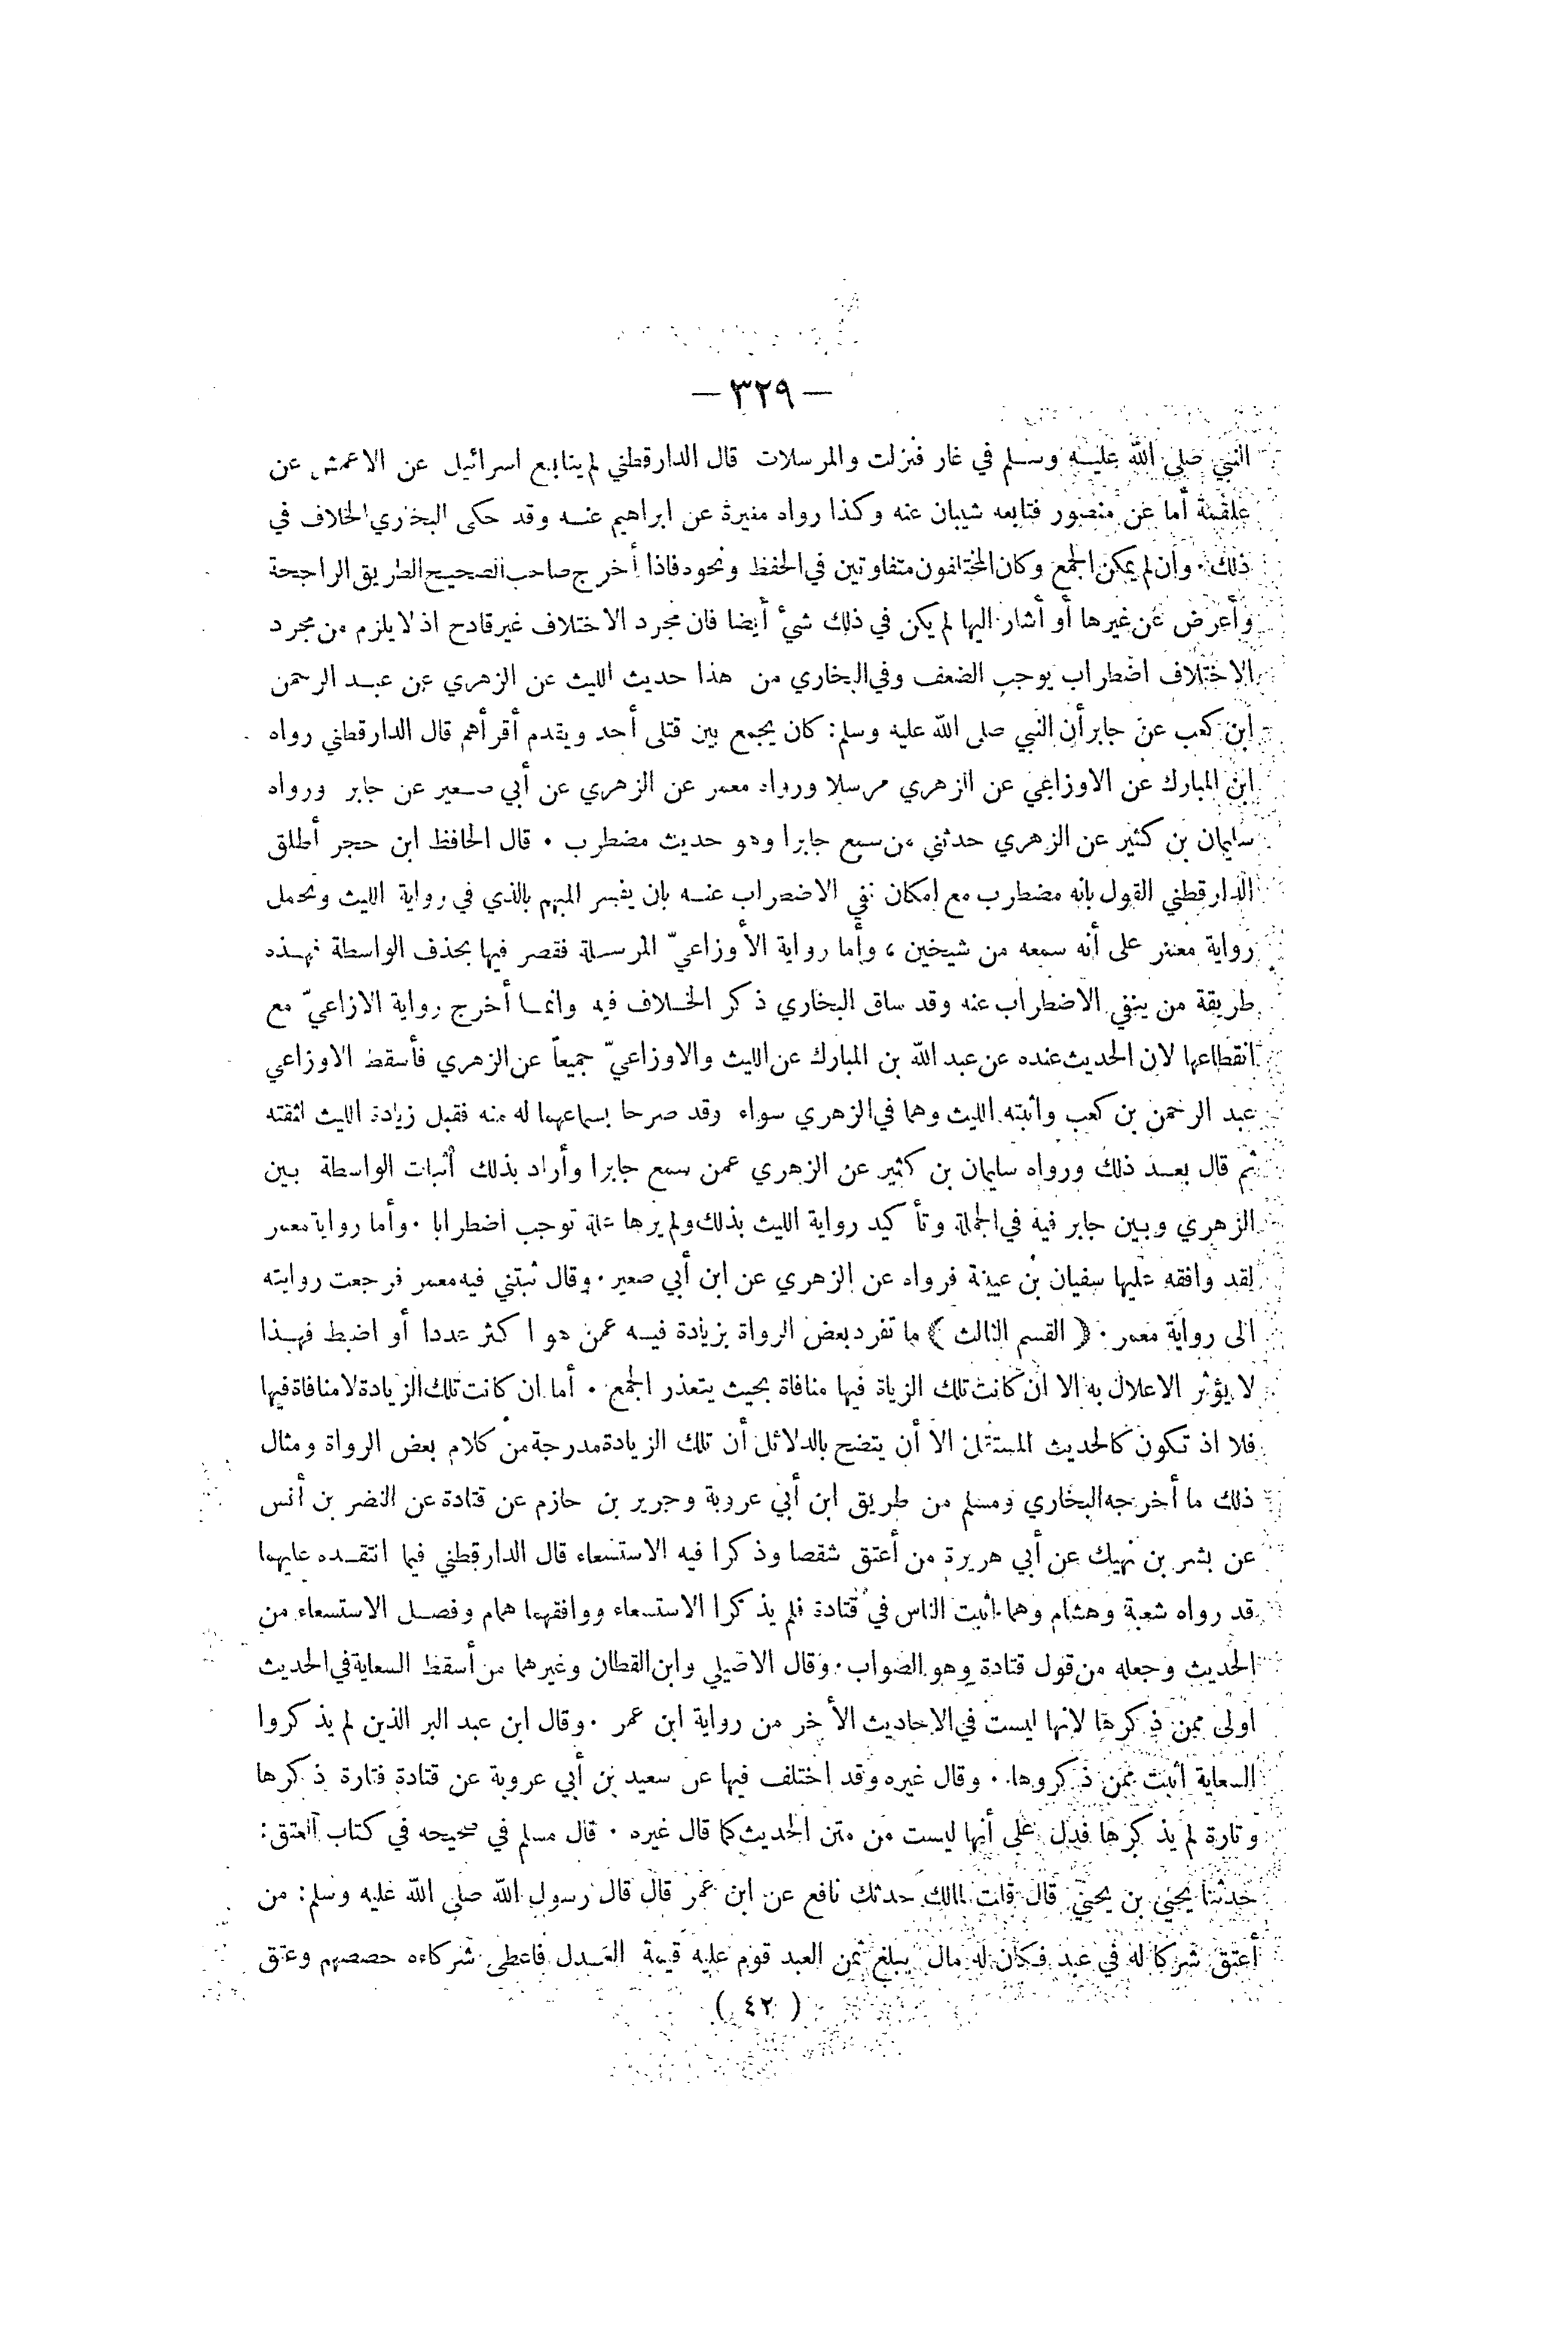 — ٣٢٩ —
النبي صلى الله عليه وسلم في غار فنزلت والمرسلات قال الدارقطني لم يتابع اسرائيل عن الاعمش عن
علقمة أما عن منصور فتابعه شيبان عنه وكذا رواه مغيرة عن ابراهيم عنه وقد حكى البخاري الخلاف في
ذلك . وان لم يمكن الجمع وكان المختلفون متفاوتين في الحفظ ونحوه فاذا أخرج صاحب الصحيح الطريق الراجحة
وأعرض عن غيرها أو أشار اليها لم يكن في ذلك شيء أيضا فان مجرد الاختلاف غير قادح اذ لا يلزم من مجرد
الاختلاف اضطراب يوجب الضعف وفي البخاري من هذا حديث الليث عن الزهري عن عبد الرحمن
ابن كعب عن جابر أن النبي صلى الله عليه وسلم: كان يجمع بين قتلى أحد ويقدم أقرأهم قال الدارقطني رواه
ابن المبارك عن الاوزاعي عن الزهري مرسلا ورواه معمر عن الزهري عن أبي صعير عن جابر ورواه
سليمان بن كثير عن الزهري حدثني من سمع جابرا وهو حديث مضطرب . قال الحافظ ابن حجر أطلق
الدارقطني القول بانه مضطرب مع امكان نفي الاضطراب عنه بان يفسر المبهم بالذي في رواية الليث وتحمل
رواية معمر على أنه سمعه من شيخين ، وأما رواية الأوزاعيّ المرسلة فقصر فيها بحذف الواسطة فهذه
طريقة من ينفي الاضطراب عنه وقد ساق البخاري ذكر الخلاف فيه وانما أخرج رواية الازاعيّ مع
انقطاعها لان الحديث عنده عن عبد الله بن المبارك عن الليث والاوزاعيّ جميعاً عن الزهري فأسقط الاوزاعي
عبد الرحمن بن كعب واثبته الليث وهما في الزهري سواء وقد صرحا بسماعهما له منه فقبل زيادة الليث لثقته
ثم قال بعد ذلك ورواه سليمان بن كثير عن الزهري عمن سمع جابرا وأراد بذلك أثبات الواسطة بين
الزهري وبين جابر فيه في الجملة وتأكيد رواية الليث بذلك ولم يرها علة توجب اضطرابا . وأما رواية معمر
لقد وافقه عليها سفيان بن عيينة فرواه عن الزهري عن ابن أبي صعير . وقال ثبتني فيه معمر فرجعت روايته
الى رواية معمر . ﴿ القسم الثالث ﴾ ما تفرد بعض الرواة بزيادة فيه عمن هو اكثر عددا أو اضبط فهذا
لا يؤثر الاعلال به الا ان كانت تلك الزياة فيها منافاة بحيث يتعذر الجمع . أما ان كانت تلك الزيادة لا منافاة فيها
فلا اذ تكون كالحديث المستقل الا أن يتضح بالدلائل أن تلك الزيادة مدرجة من كلام بعض الرواة ومثال
ذلك ما أخرجه البخاري ومسلم من طريق ابن أبي عروبة وجرير بن حازم عن قتادة عن النضر بن أنس
عن بشر بن نهيك عن أبي هريرة من أعتق شقصا وذكرا فيه الاستسعاء قال الدارقطني فيما انتقده عليهما
قد رواه شعبة وهشام وهما اثبت الناس في قتادة فلم يذكرا الاستسعاء ووافقهما همام وفصل الاستسعاء من
الحديث وجعله من قول قتادة وهو الصواب . وقال الاصيلي وابن القطان وغيرهما من أسقط السعاية في الحديث
اولى ممن ذكرها لانها ليست في الاحاديث الأخر من رواية ابن عمر . وقال ابن عبد البر الذين لم يذكروا
السعاية أثبت ممن ذكروها . وقال غيره وقد اختلف فيها عن سعيد بن أبي عروبة عن قتادة فتارة ذكرها
وتارة لم يذكرها فدل على أنها ليست من متن الحديث كما قال غيره . قال مسلم في صحيحه في كتاب العتق:
حدثنا يحيى بن يحيى قال قلت لمالك حدثك نافع عن ابن عمر قال قال رسول الله صلى الله عليه وسلم: من
أعتق شركا له في عبد فكان له مال يبلغ ثمن العبد قوم عليه قيمة العدل فاعطى شركاءه حصصهم وعتق
( ٤٢ )